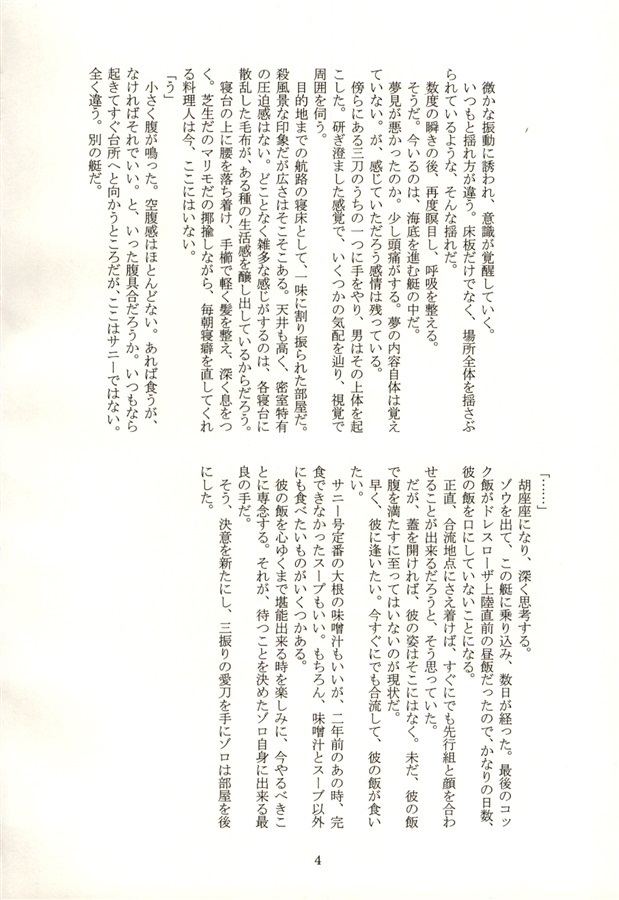 微かな振動に誘われ、意識が覚醒していく。
いつもと揺れ方が違う。床板だけでなく、場所全体を揺さぶ
られているような、そんな揺れだ。
数度の瞬きの後、再度瞑目し、呼吸を整える。
そうだ。今いるのは、海底を進む艇の中だ。
夢見が悪かったのか。少し頭痛がする。夢の内容自体は覚え
ていない。が、感じていただろう感情は残っている。
傍らにある三刀のうちの一つに手をやり、男はその上体を起
こした。研ぎ澄ました感覚で、いくつかの気配を辿り、視覚で
周囲を伺う。
目的地までの航路の寝床として、一味に割り振られた部屋だ。
殺風景な印象だが広さはそこそこある。天井も高く、密室特有
の圧迫感はない。どことなく雑多な感じがするのは、各寝台に
散乱した毛布が、ある種の生活感を醸し出しているからだろう。
寝台の上に腰を落ち着け、手櫛で軽く髪を整え、深く息をつ
く。芝生だのマリモだの揶揄しながら、毎朝寝癖を直してくれ
る料理人は今、ここにはいない。
「う」
小さく腹が鳴った。空腹感はほとんどない。あれば食うが、
なければそれでいい。と、いった腹具合だろうか。いつもなら
起きてすぐ台所へと向かうところだが、ここはサニーではない。
全く違う。別の艇だ。
「……」
胡座座になり、深く思考する。
ゾウを出て、この艇に乗り込み、数日が経った。最後のコッ
ク飯がドレスローザ上陸直前の昼飯だったので、かなりの日数、
彼の飯を口にしていないことになる。
正直、合流地点にさえ着けば、すぐにでも先行組と顔を合わ
せることが出来るだろうと、そう思っていた。
だが、蓋を開ければ、彼の姿はそこにはなく。未だ、彼の飯
で腹を満たすに至ってはいないのが現状だ。
早く、彼に逢いたい。今すぐにでも合流して、彼の飯が食い
たい。
サニー号定番の大根の味噌汁もいいが、二年前のあの時、完
食できなかったスープもいい。もちろん、味噌汁とスープ以外
にも食べたいものがいくつかある。
彼の飯を心ゆくまで堪能出来る時を楽しみに、今やるべきこ
とに専念する。それが、待つことを決めたゾロ自身に出来る最
良の手だ。
そう、決意を新たにし、三振りの愛刀を手にゾロは部屋を後
にした。
4